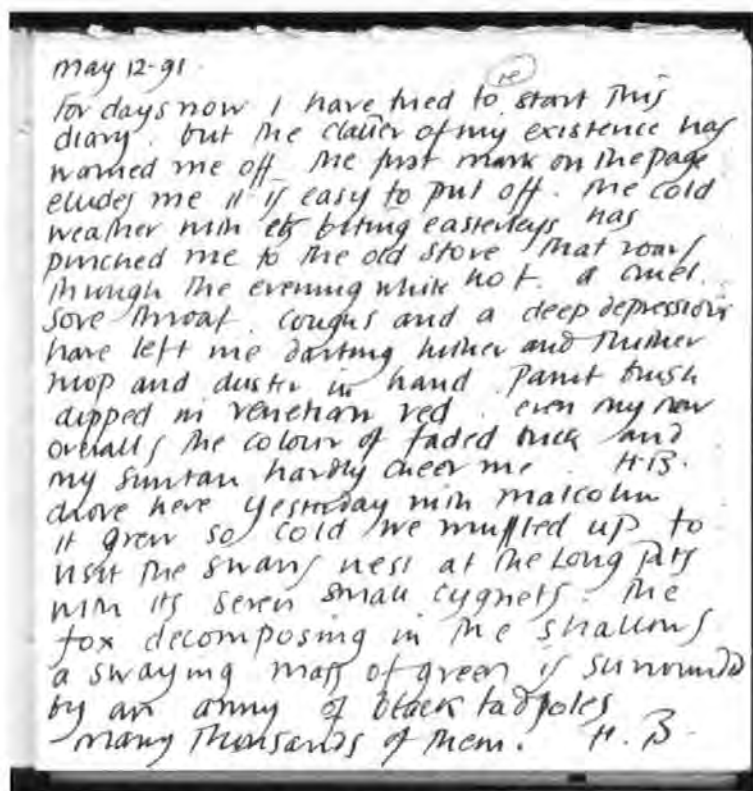 may 12-91.
For days now I have tried to (re) start this
diary. but the clatter of my existence has
warned me off. The first mark on the page
eludes me it is easy to put off. The cold
weather with its biting easterleys has
pinched me to the old stove that roars
through the evening white hot. a cruel.
sore throat. coughs and a deep depression
have left me darting hither and thither
mop and duster in hand. Paint brush
dipped in venetian red. even my new
overalls the colour of faded brick and
my suntan hardly cheer me. H.B.
drove here yesterday with malcolm
it grew so cold we muffled up to
visit the swans nest at the Long Pits
with its seven small cygnets. The
fox decomposing in the shallows
a swaying mass of green is surrounded
by an army of black tadpoles
many thousands of them. H.B.